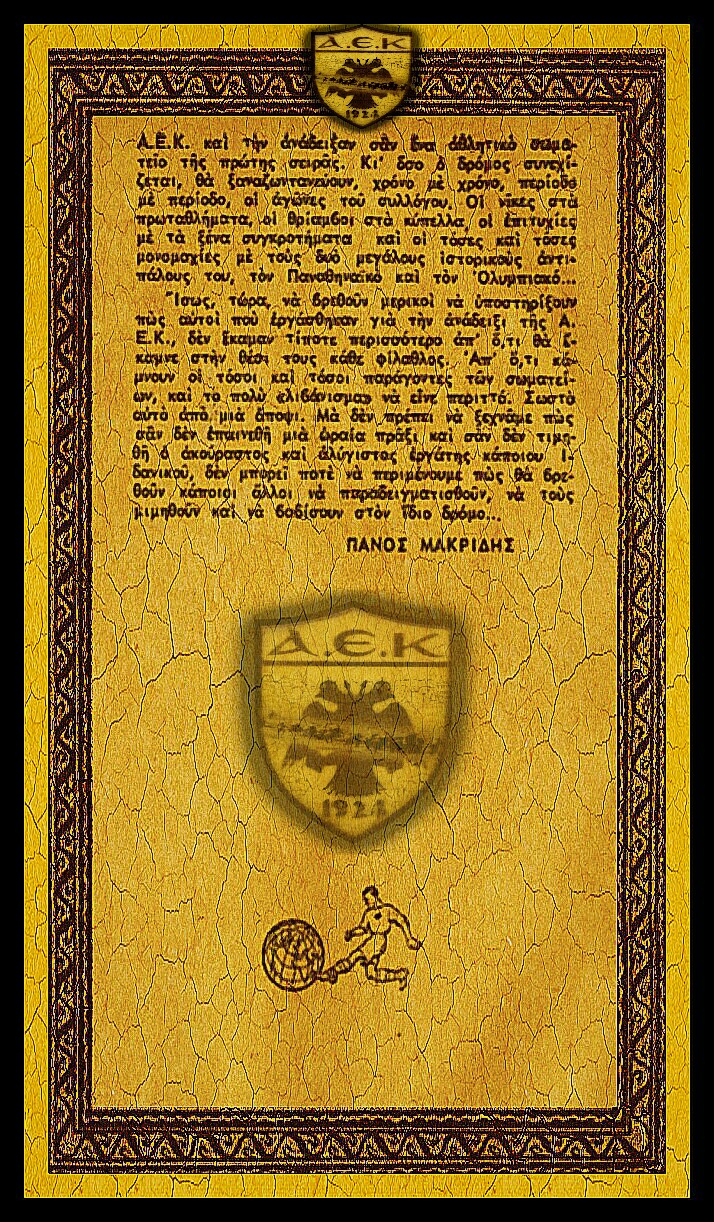 Α.Ε.Κ.
1924
Α.Ε.Κ. καὶ τὴν ἀνάδειξαν σὰν ἕνα ἀθλητικὸ σωμα-
τεῖο τῆς πρώτης σειρᾶς. Κι' ὅσο ὁ δρόμος συνεχί-
ζεται, θὰ ξαναζωντανεύουν, χρόνο μὲ χρόνο, περίοδο
μὲ περίοδο, οἱ ἀγῶνες τοῦ συλλόγου. Οἱ νίκες στὰ
πρωταθλήματα, οἱ θρίαμβοι στὰ κύπελλα, οἱ ἐπιτυχίες
μὲ τὰ ξένα συγκροτήματα καὶ οἱ τόσες καὶ τόσες
μονομαχίες μὲ τοὺς δυὸ μεγάλους ἱστορικοὺς ἀντι-
πάλους του, τὸν Παναθηναϊκὸ καὶ τὸν Ὀλυμπιακό...
Ἴσως, τώρα, νὰ βρεθοῦν μερικοὶ νὰ ὑποστηρίξουν
πὼς αὐτοὶ ποὺ ἐργάσθηκαν γιὰ τὴν ἀνάδειξι τῆς Α.
Ε.Κ., δὲν ἔκαμαν τίποτε περισσότερο ἀπ' ὅ,τι θὰ ἔ-
καμνε στὴν θέσι τους κάθε φίλαθλος. Ἀπ' ὅ,τι κά-
μνουν οἱ τόσοι καὶ τόσοι παράγοντες τῶν σωματεί-
ων, καὶ τὸ πολὺ «λιβάνισμα» νὰ εἶνε περιττό. Σωστὸ
αὐτὸ ἀπὸ μιὰ ἄποψι. Μὰ δὲν πρέπει νὰ ξεχνᾶμε πὼς
σὰν δὲν ἐπαινεθῆ μιὰ ὡραία πράξι καὶ σὰν δὲν τιμη-
θῆ ὁ ἀκούραστος καὶ ἀλύγιστος ἐργάτης κάποιου ἰ-
δανικοῦ, δὲν μπορεῖ ποτὲ νὰ περιμένουμε πὼς θὰ βρε-
θοῦν κάποιοι ἄλλοι νὰ παραδειγματισθοῦν, νὰ τοὺς
μιμηθοῦν καὶ νὰ βαδίσουν στὸν ἴδιο δρόμο...
ΠΑΝΟΣ ΜΑΚΡΙΔΗΣ
Α.Ε.Κ
1924